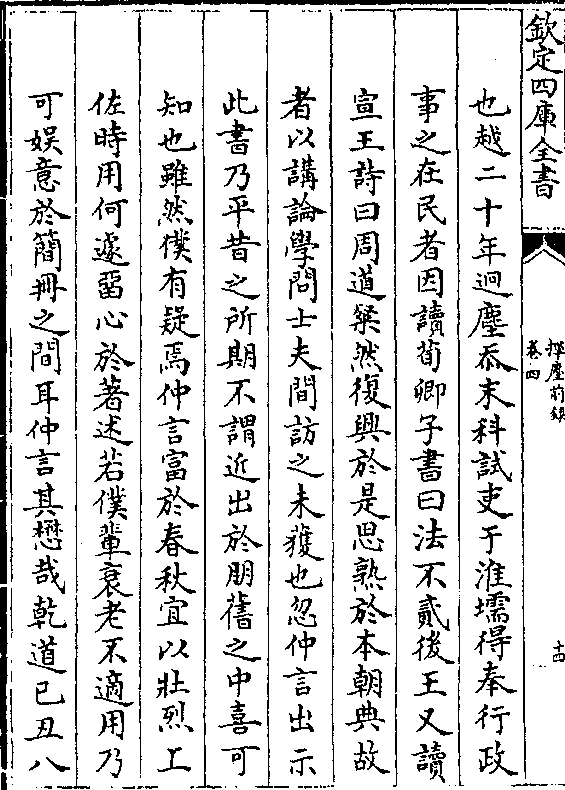 欽定四庫全書
揮塵前録
卷四
十四
也越二十年迥塵忝末科試吏于淮壖得奉行政
事之在民者因讀荀卿子書曰法不貳後王又讀
宣王詩曰周道粲然復興於是思熟於本朝典故
者以講論學問士夫間訪之未獲也忽仲言出示
此書乃平昔之所期不謂近出於朋舊之中喜可
知也雖然僕有疑焉仲言富於春秋宜以壯烈工
佐時用何遽畱心於著述若僕輩衰老不適用乃
可娯意於簡冊之間耳仲言其懋哉乾道己丑八